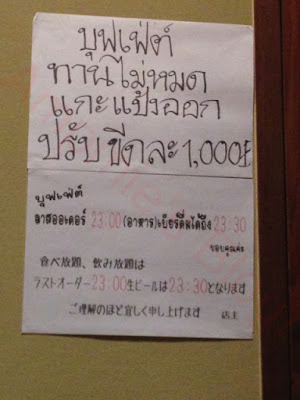 บุฟเฟ่ต์
ทานไม่หมด
แกะแป้งออก
ปรับ ขีดละ 1,000฿
บุฟเฟ่ต์
ลาสออเดอร์ 23:00 (อาหาร) เบียร์ดื่มได้ถึง 23:30
ขอบคุณค่ะ
食べ放題、飲み放題は
ラストオーダー23:00生ビールは23:30となります
ご理解のほど宜しく申し上げます 店主